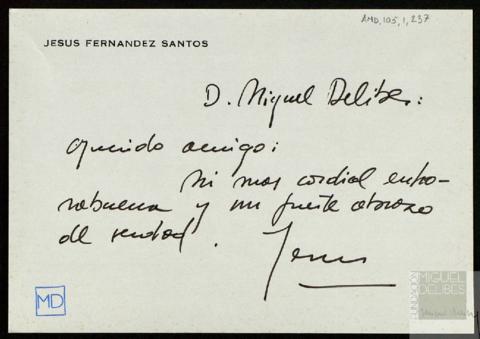 AMD,105,1,237
JESUS FERNANDEZ SANTOS
D. Miguel Delibes:
Querido amigo:
Mi mas cordial enho-
rabuena y un fuerte abrazo
de verdad.
Jesus
MD
FUNDACIÓN
MIGUEL
DELIBES